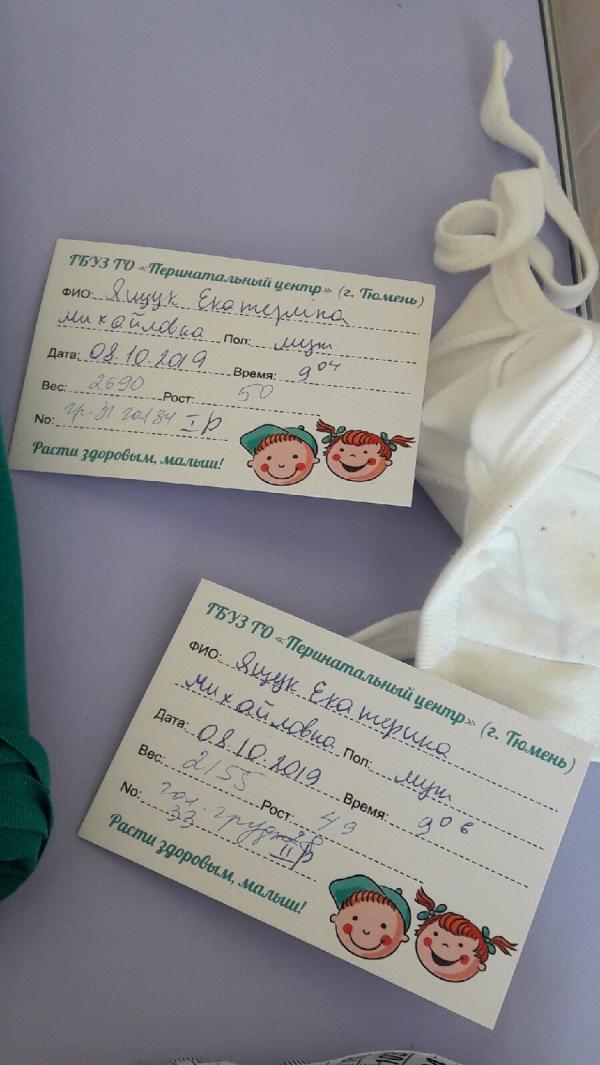 ГБУЗ ТО «Перинатальный центр» (г. Тюмень)
ФИО: Ящук Екатерина
Михайловна Пол: муж
Дата: 08.10.2019 Время: 9 04
Вес: 2690 Рост: 50
No: гр-31 гол 34 I р
Расти здоровым, малыш!
ГБУЗ ТО «Перинатальный центр» (г. Тюмень)
ФИО: Ящук Екатерина
Михайловна Пол: муж
Дата: 08.10.2019 Время: 9 06
Вес: 2155 Рост: 49
No: гол. груд
33 II р
Расти здоровым, малыш!